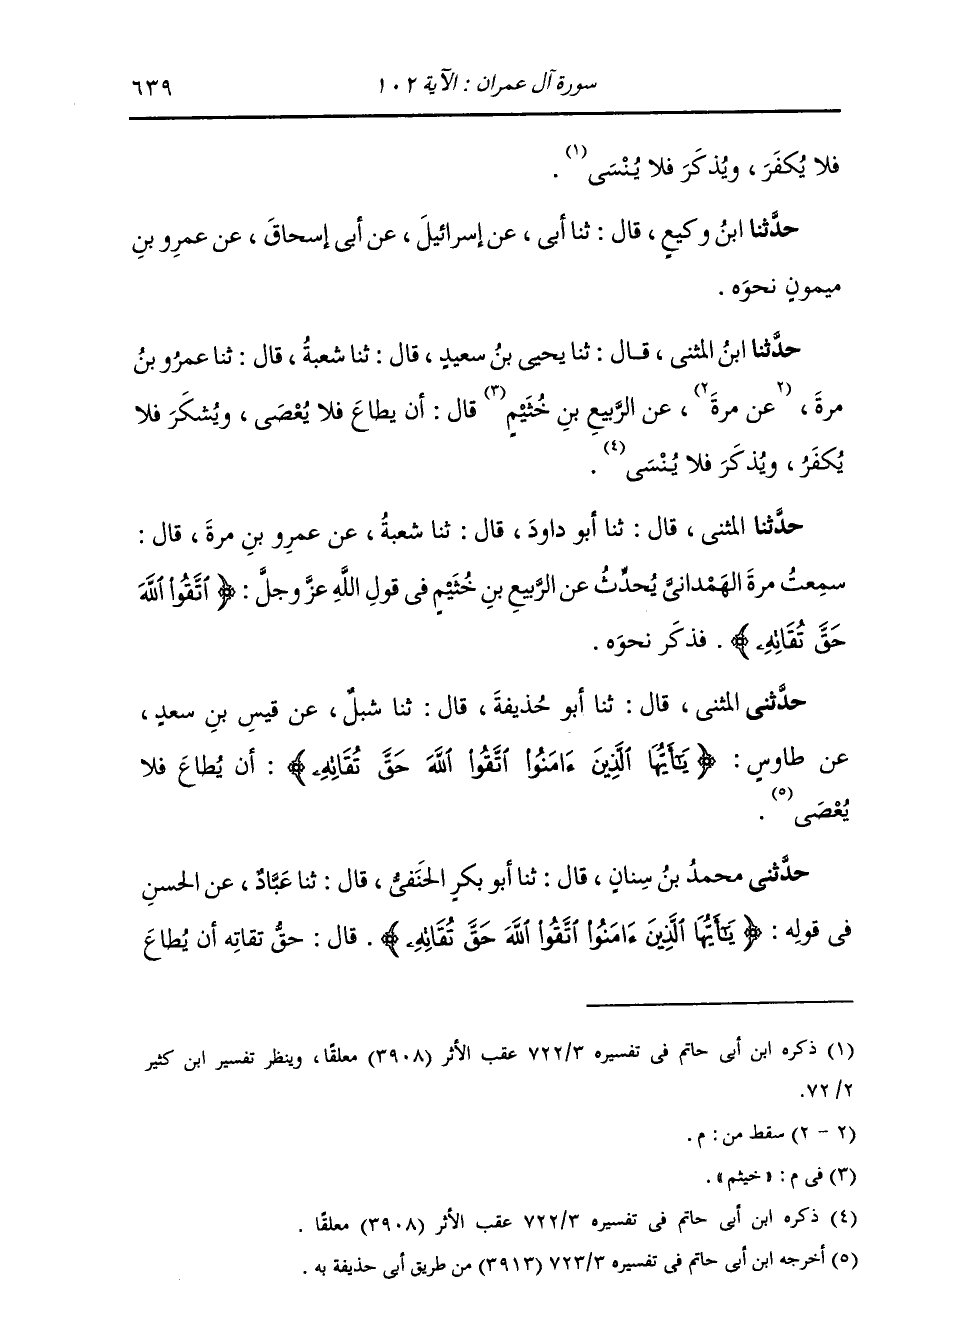 سورة آل عمران : الآية ١٠٢
٦٣٩
فلا يُكفَرَ ، ويُذكَرَ فلا يُنْسَى(١) .
حدَّثنا ابنُ وكيعٍ ، قال : ثنا أبى ، عن إسرائيلَ ، عن أبى إسحاقَ ، عن عمرِو بنِ
ميمونٍ نحوَه .
حدَّثنا ابنُ المثنى ، قال : ثنا يحيى بنُ سعيدٍ ، قال : ثنا شعبةُ ، قال : ثنا عمرُو بنُ
مرةَ ، (٢عن مرةَ٢) ، عن الرَّبيعِ بنِ خُثَيْمٍ(٣) قال : أن يطاعَ فلا يُعْصَى ، ويُشكَرَ فلا
يُكفَرُ ، ويُذكَرَ فلا يُنْسَى(٤) .
حدَّثنا المثنى ، قال : ثنا أبو داودَ ، قال : ثنا شعبةُ ، عن عمرِو بنِ مرةَ ، قال :
سمِعتُ مرةَ الهَمْدانىَّ يُحدِّثُ عن الرَّبيعِ بنِ خُثَيْمٍ فى قولِ اللَّهِ عزَّ وجلَّ : ﴿ ٱتَّقُوا۟ ٱللَّهَ
حَقَّ تُقَاتِهِۦ ﴾ . فذكَر نحوَه .
حدَّثنى المثنى ، قال : ثنا أبو حُذيفةَ ، قال : ثنا شبلٌ ، عن قيسِ بنِ سعدٍ ،
عن طاوسٍ : ﴿ يَٰٓأَيُّهَا ٱلَّذِينَ ءَامَنُوا۟ ٱتَّقُوا۟ ٱللَّهَ حَقَّ تُقَاتِهِۦ ﴾ : أن يُطاعَ فلا
يُعْصَى(٥) .
حدَّثنى محمدُ بنُ سِنانٍ ، قال : ثنا أبو بكرٍ الحَنَفىُّ ، قال : ثنا عَبَّادٌ ، عن الحسنِ
فى قولِه : ﴿ يَٰٓأَيُّهَا ٱلَّذِينَ ءَامَنُوا۟ ٱتَّقُوا۟ ٱللَّهَ حَقَّ تُقَاتِهِۦ ﴾ . قال : حقُّ تقاتِه أن يُطاعَ
(١) ذكره ابن أبى حاتم فى تفسيره ٧٢٢/٣ عقب الأثر (٣٩٠٨) معلقًا ، وينظر تفسير ابن كثير
٧٢/٢.
(٢ - ٢) سقط من : م .
(٣) فى م : « خيثم » .
(٤) ذكره ابن أبى حاتم فى تفسيره ٧٢٢/٣ عقب الأثر (٣٩٠٨) معلقًا .
(٥) أخرجه ابن أبى حاتم فى تفسيره ٧٢٣/٣ (٣٩١٣) من طريق أبى حذيفة به .